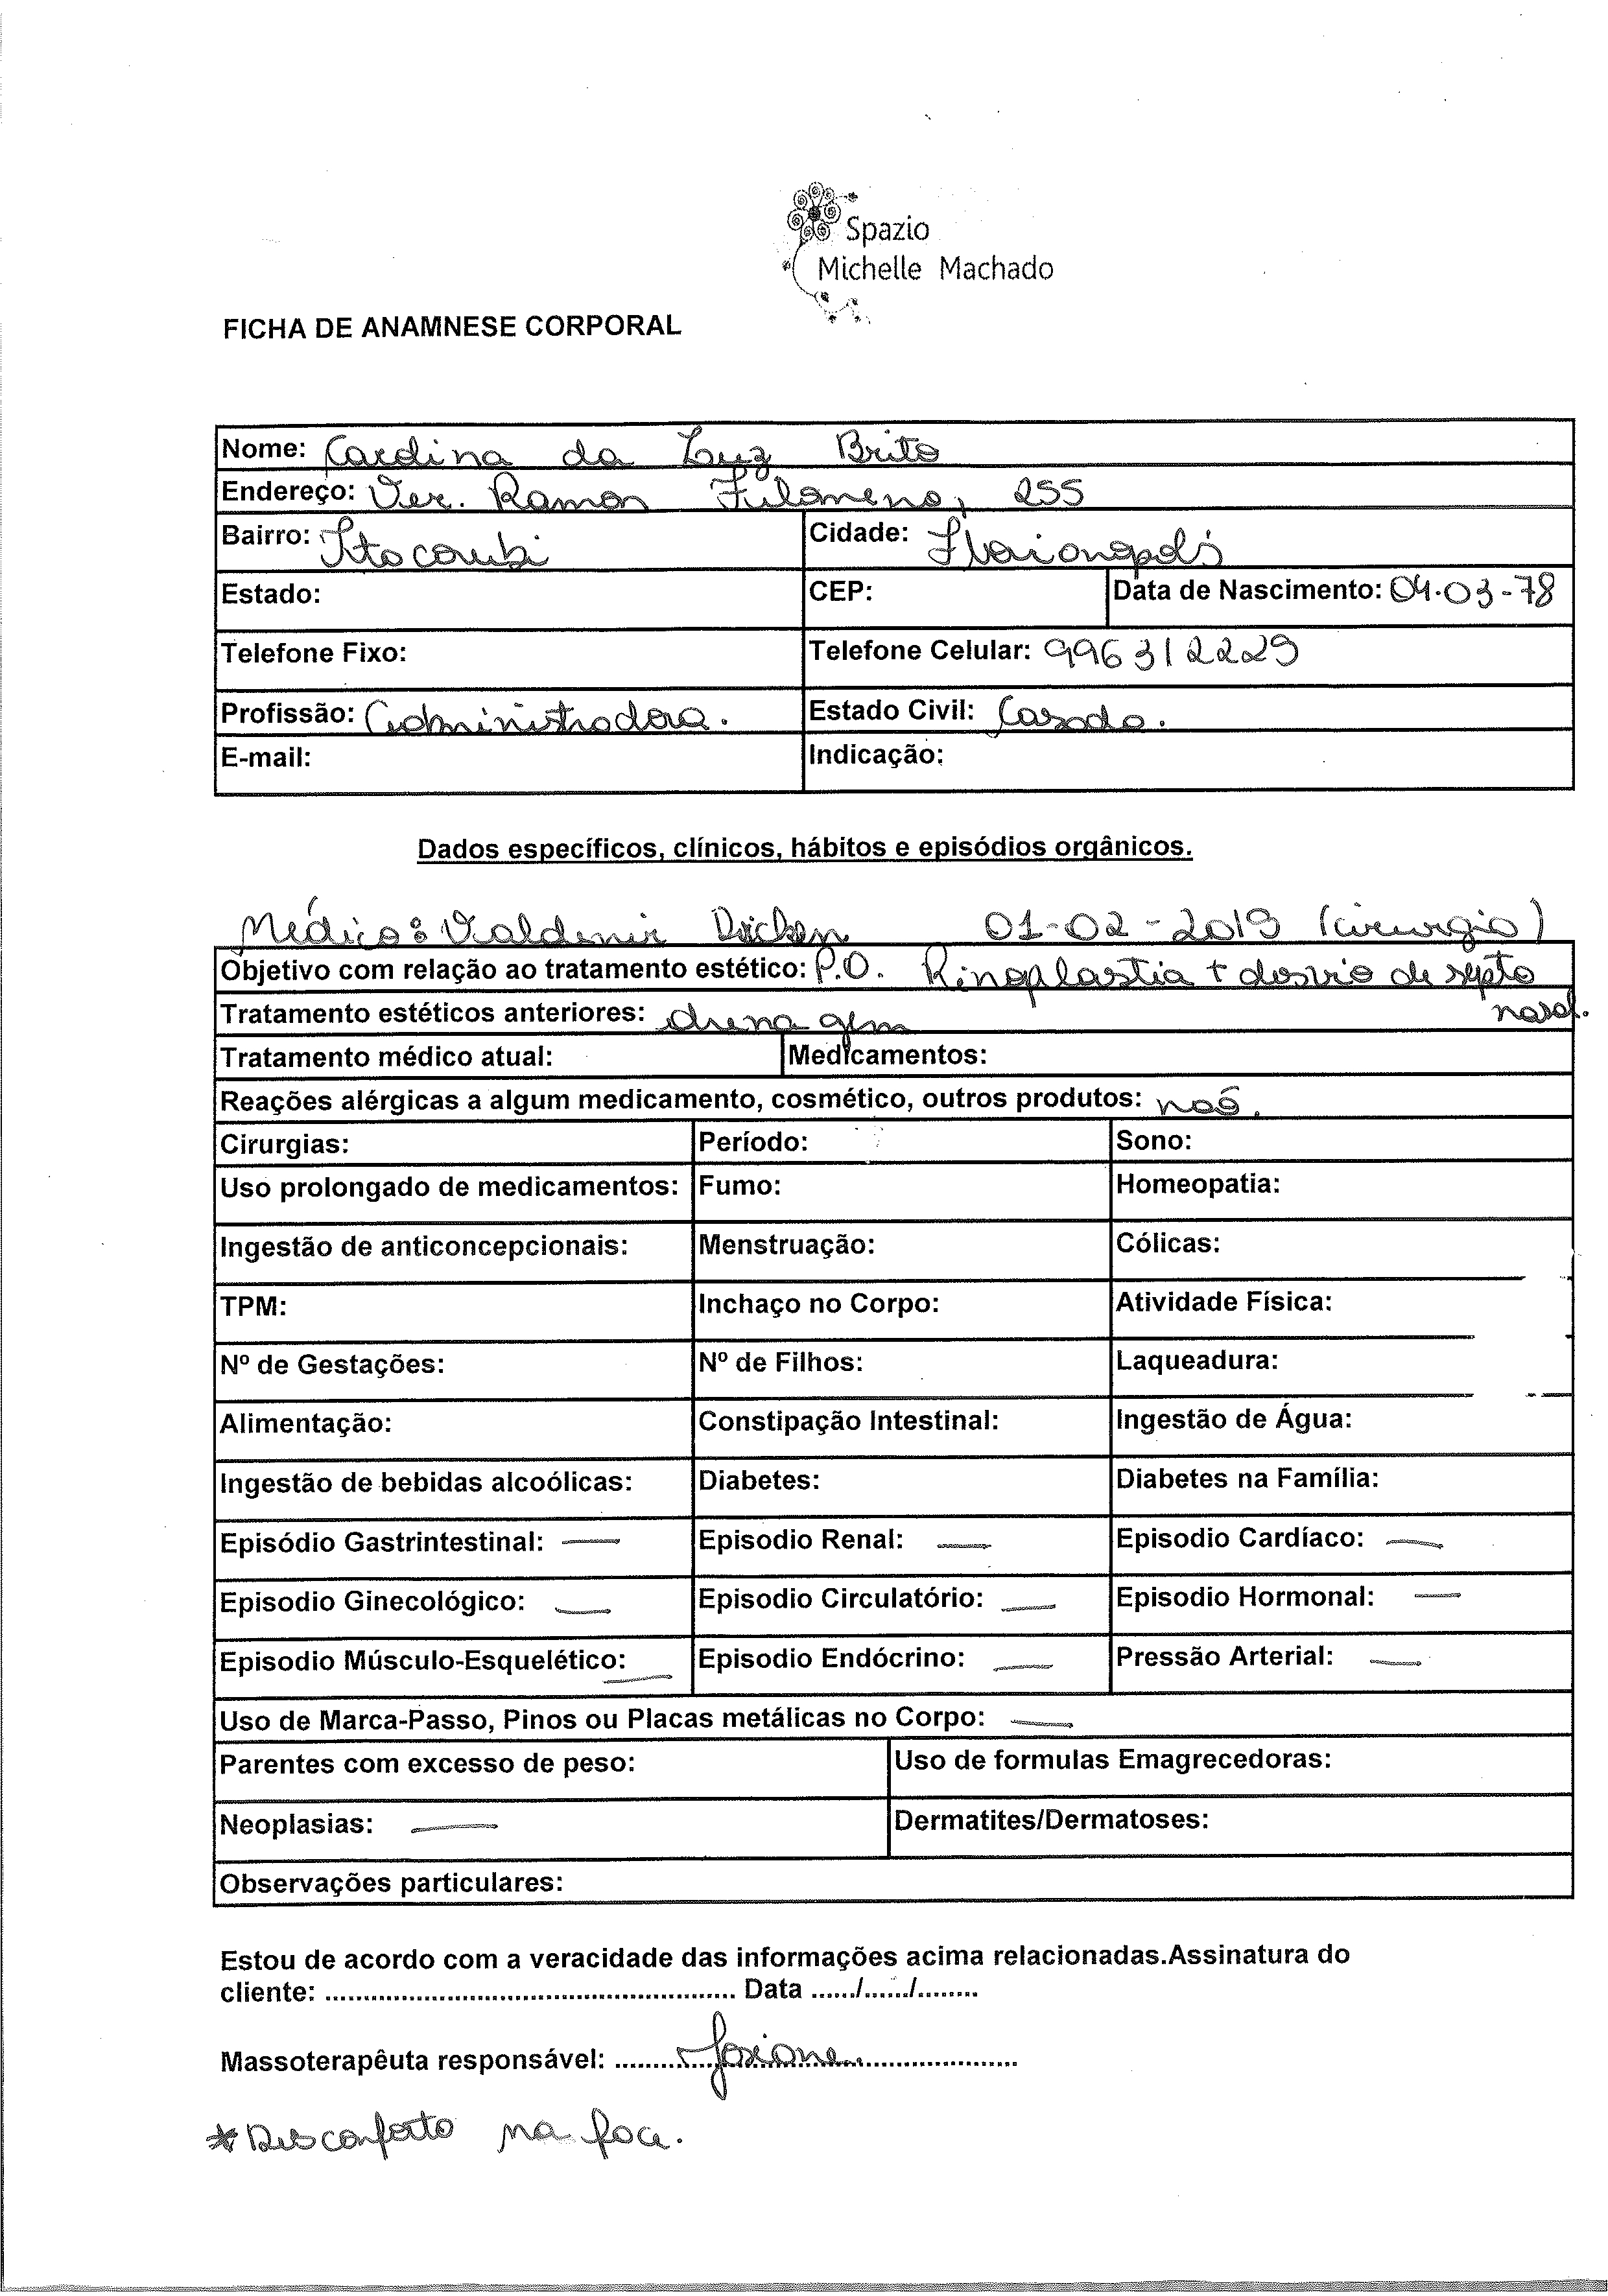 Spazio
Michelle Machado
FICHA DE ANAMNESE CORPORAL
Nome: Cardina da Luz Brito
Endereço: Ver. Ramon Filomeno, 255
Bairro: Itacorubi Cidade: Florianopolis
Estado: CEP: Data de Nascimento: 04-03-78
Telefone Fixo: Telefone Celular: 996312229
Profissão: Administradora. Estado Civil: Casada.
E-mail: Indicação:
Dados específicos, clínicos, hábitos e episódios orgânicos.
Médico: Valdemir 01-02-2019 (cirurgia)
Objetivo com relação ao tratamento estético: P.O. Rinoplastia + desvio de septo
Tratamento estéticos anteriores: drenagem nasal.
Tratamento médico atual: Medicamentos:
Reações alérgicas a algum medicamento, cosmético, outros produtos: não.
Cirurgias: Período: Sono:
Uso prolongado de medicamentos: Fumo: Homeopatia:
Ingestão de anticoncepcionais: Menstruação: Cólicas:
TPM: Inchaço no Corpo: Atividade Física:
Nº de Gestações: Nº de Filhos: Laqueadura:
Alimentação: Constipação Intestinal: Ingestão de Água:
Ingestão de bebidas alcoólicas: Diabetes: Diabetes na Família:
Episódio Gastrintestinal: — Episodio Renal: — Episodio Cardíaco: —
Episodio Ginecológico: — Episodio Circulatório: — Episodio Hormonal: —
Episodio Músculo-Esquelético: — Episodio Endócrino: — Pressão Arterial: —
Uso de Marca-Passo, Pinos ou Placas metálicas no Corpo: —
Parentes com excesso de peso: Uso de formulas Emagrecedoras:
Neoplasias: — Dermatites/Dermatoses:
Observações particulares:
Estou de acordo com a veracidade das informações acima relacionadas.Assinatura do
cliente: ...................................................... Data ....../....../........
Massoterapêuta responsável: ......... Josiane .....................
*Desconforto na face.